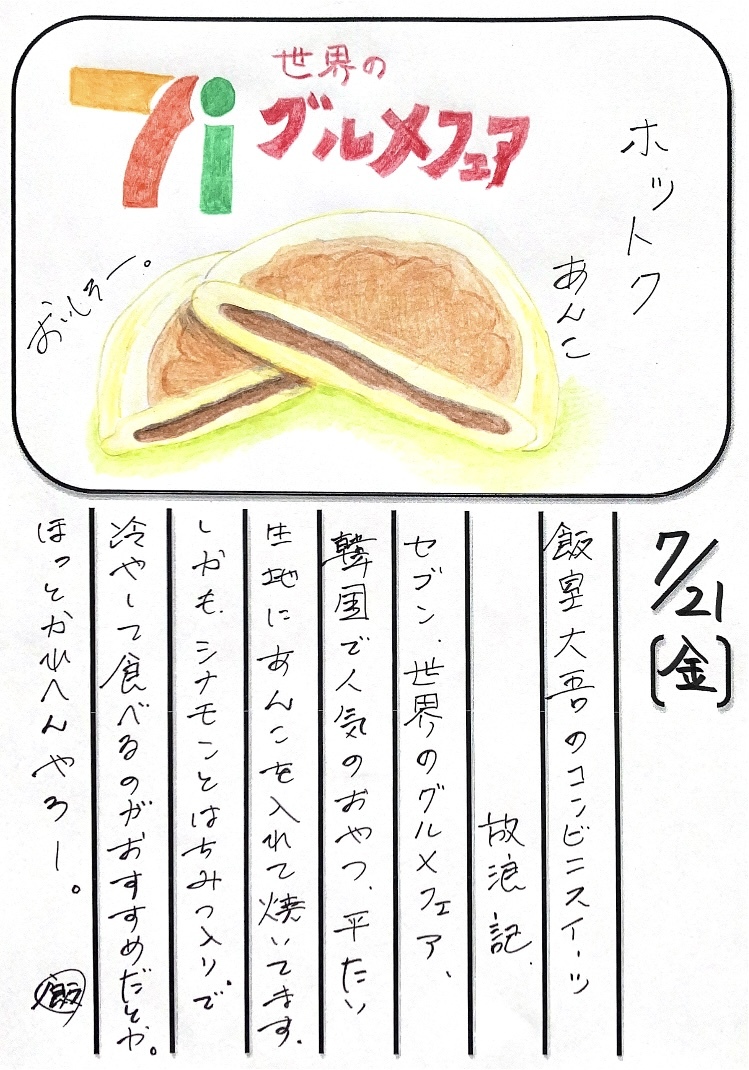 7i
世界の
グルメフェア
ホットク
あんこ
おいしそー。
7/21
[金]
飯室大吾のコンビニスイーツ
放浪記、
セブン、世界のグルメフェア、
韓国で人気のおやつ、平たい
生地にあんこを入れて焼いてます。
しかも、シナモンとはちみつ入り。で
冷やして食べるのがおすすめだとか。
ほっとかれへんやろー。
飯